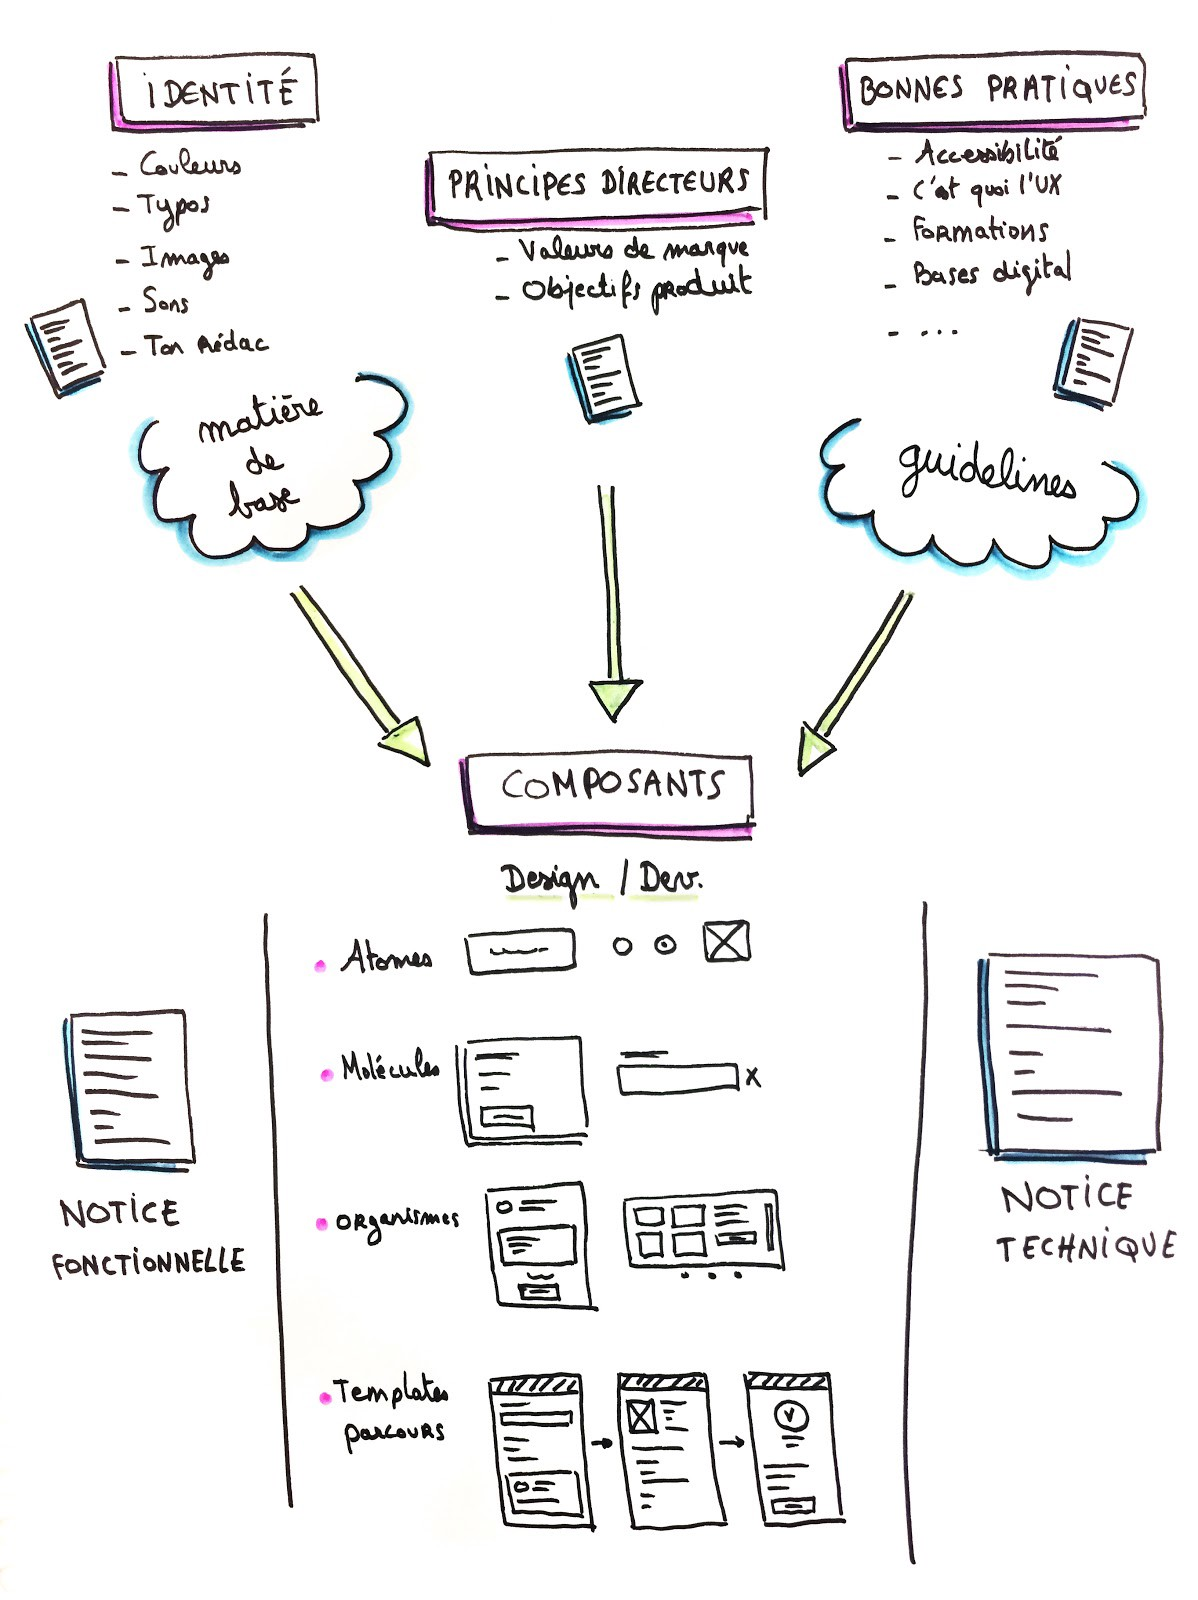 iDENTITÉ
- Couleurs
- Typos
- Images
- Sons
- Ton Rédac
matière
de
base
PRINCIPES DIRECTEURS
- Valeurs de marque
- Objectifs produit
BONNES PRATIQUES
- Accessibilité
- C'est quoi l'UX
- Formations
- Bases digital
- ...
guidelines
COMPOSANTS
Design / Dev.
• Atomes
• Molécules
x
• Organismes
• Templates
parcours
NOTICE
FONCTIONNELLE
NOTICE
TECHNIQUE